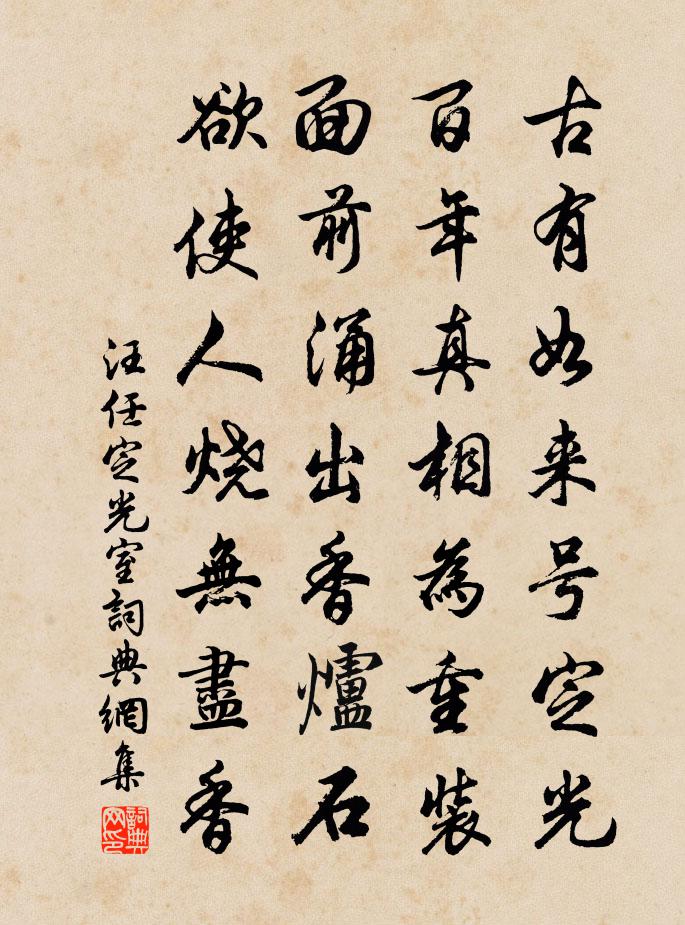 古有如来号定光
百年真相為重装
面前涌出香爐石
欲使人烧無盡香
汪任定光室詞典網集
詞典网印